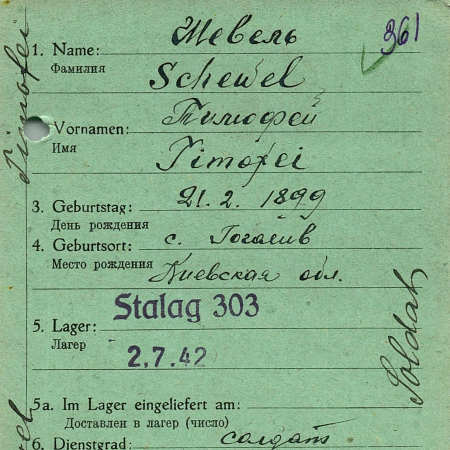 361
1. Name: Шевель
Фамилия Schewel
Vornamen: Тимофей
Имя Timofei
3. Geburtstag: 21. 2. 1899
День рождения
4. Geburtsort: с. Гогаев
Место рождения Киевская обл.
Stalag 303
5. Lager:
Лагер 2.7.42
5a. Im Lager eingeliefert am:
Доставлен в лагер (число)
6. Dienstgrad: солдат
Timofei
Soldat